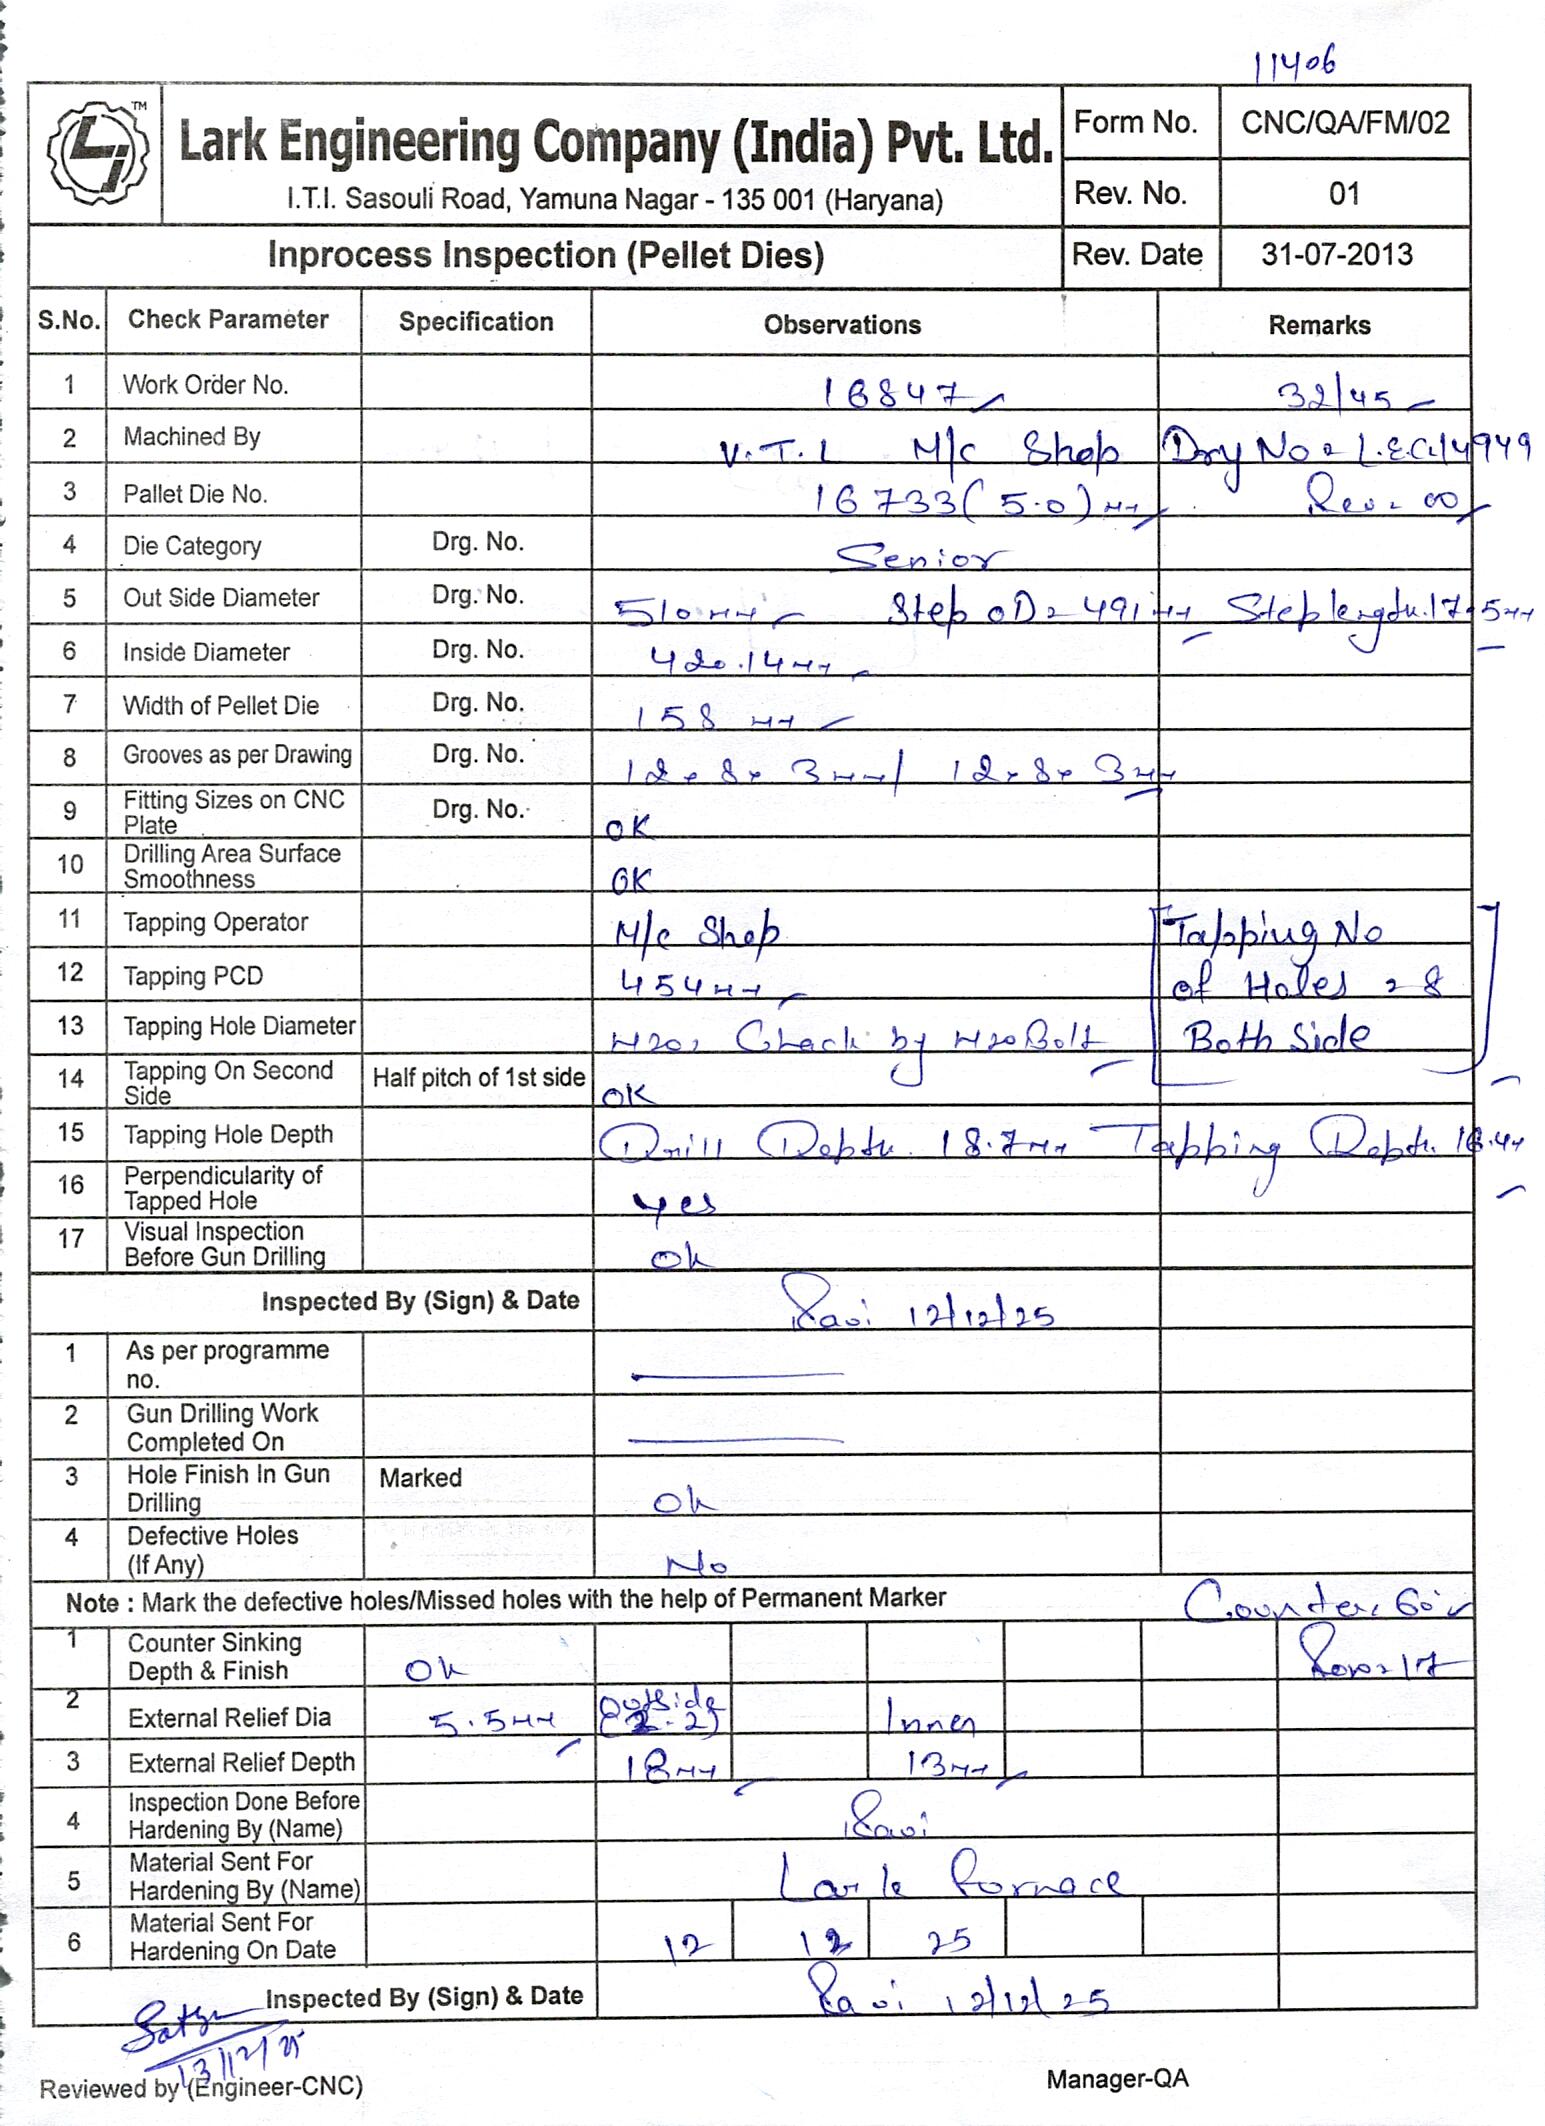 11406
TM
Lark Engineering Company (India) Pvt. Ltd.
I.T.I. Sasouli Road, Yamuna Nagar - 135 001 (Haryana)
Form No. CNC/QA/FM/02
Rev. No. 01
Inprocess Inspection (Pellet Dies)
Rev. Date 31-07-2013
S.No. Check Parameter Specification Observations Remarks
1 Work Order No. 16847 32/45
2 Machined By V.T.L M/c Shop Drg No = L.E.C./4949
3 Pallet Die No. 16733 (5.0) mm Rev = 00
4 Die Category Drg. No. Senior
5 Out Side Diameter Drg. No. 510 mm Step OD = 491 mm Step length. 17.5 mm
6 Inside Diameter Drg. No. 420.14 mm
7 Width of Pellet Die Drg. No. 158 mm
8 Grooves as per Drawing Drg. No. 12 x 8 x 3 mm / 12 x 8 x 3 mm
9 Fitting Sizes on CNC Plate Drg. No. OK
10 Drilling Area Surface Smoothness OK
11 Tapping Operator M/c Shop Tapping No
12 Tapping PCD 454 mm of Holes = 8
13 Tapping Hole Diameter M20, Check by M20 Bolt Both Side
14 Tapping On Second Side Half pitch of 1st side OK
15 Tapping Hole Depth Drill Depth. 18.7 mm Tapping Depth. 16.4 mm
16 Perpendicularity of Tapped Hole yes
17 Visual Inspection Before Gun Drilling Ok
Inspected By (Sign) & Date Ravi 12/12/25
1 As per programme no.
2 Gun Drilling Work Completed On
3 Hole Finish In Gun Drilling Marked Ok
4 Defective Holes (If Any) No
Note : Mark the defective holes/Missed holes with the help of Permanent Marker Counter. 60°
1 Counter Sinking Depth & Finish Ok Row = 17
2 External Relief Dia 5.5 mm Outside (2-2) Inner
3 External Relief Depth 18 mm 13 mm
4 Inspection Done Before Hardening By (Name) Ravi
5 Material Sent For Hardening By (Name) Lark Fornace
6 Material Sent For Hardening On Date 12 12 25
Inspected By (Sign) & Date Ravi 12/12/25
13/12/25
Reviewed by (Engineer-CNC) Manager-QA